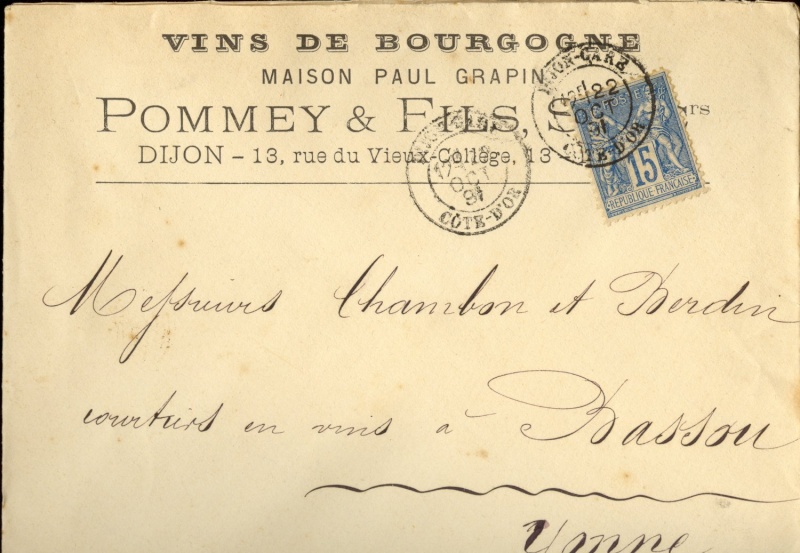 VINS DE BOURGOGNE
MAISON PAUL GRAPIN
POMMEY & FILS, rs
DIJON – 13, rue du Vieux-Collège, 13
DIJON-GARE
22
OCT
COTE-D'OR
OCT
COTE-D'OR
POSTES
15
REPUBLIQUE FRANÇAISE
Messieurs Chambon et Berdin
courtiers en vins à Bassou
Yonne